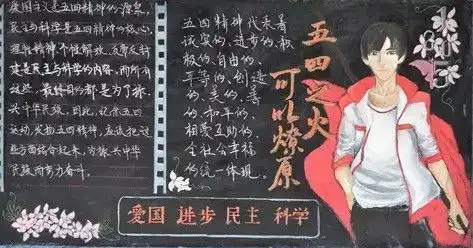 爱国主义是五四精神的源泉,
民主与科学是五四精神的核心,
理性精神、个性解放、反帝反封
建是民主与科学的内容,而所有
这些,最终目的都是为了振
兴中华民族。因此,记念五四
运动,发扬五四精神,应该把这
些方面结合起来,为振兴中华
民族而努力奋斗。
五四精神代表着
诚实的、进步的、积
极的、自由的、
平等的、创造
的、美的、善
的、和平的、
相爱互助的,
全社会幸福
的统一体现。
五四之火
可以燎原
爱国 进步 民主 科学